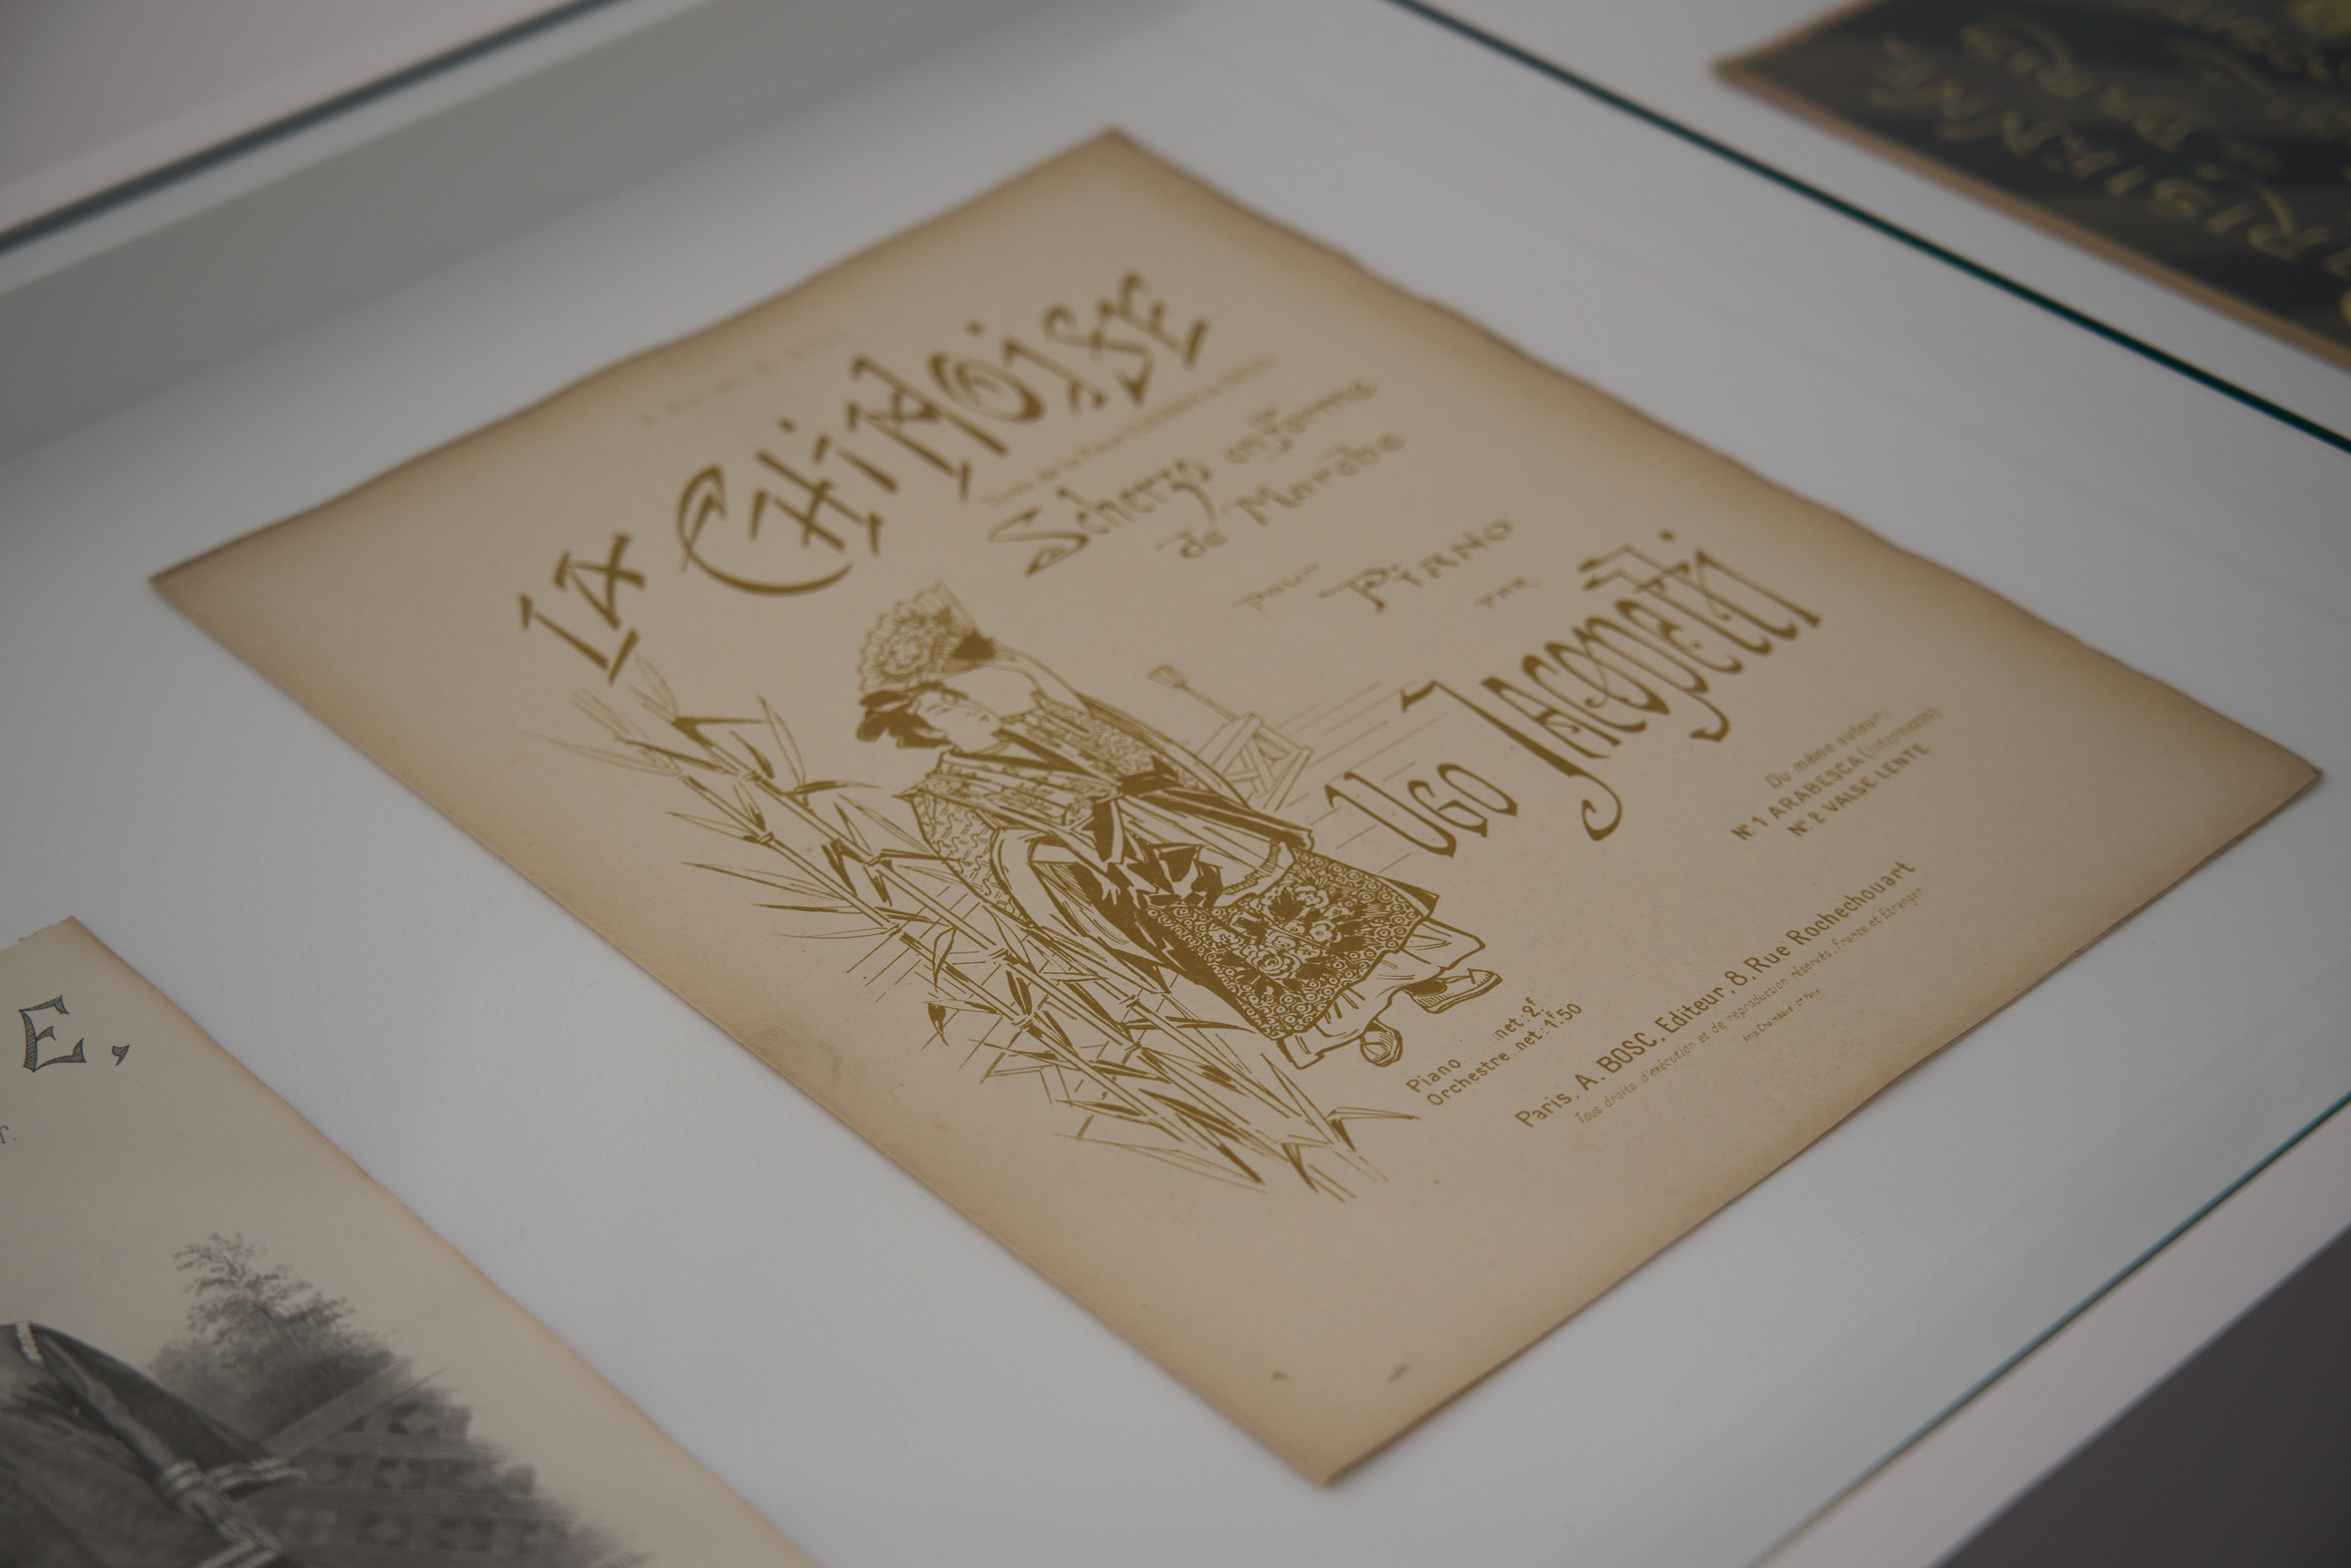 LA CHINOISE
Scherzo en forme
de Marche
pour PIANO
PAR
UGO JACOPETTI
Du même auteur:
Nº 1 ARABESCA (Intermezzo)
Nº 2 VALSE LENTE
Piano net: 2f
Orchestre net: 1f50
Paris, A. BOSC, Editeur, 8, Rue Rochechouart
Tous droits d'exécution et de reproduction réservés, France et Etranger
E,
T.
RISIENNE
PARIS